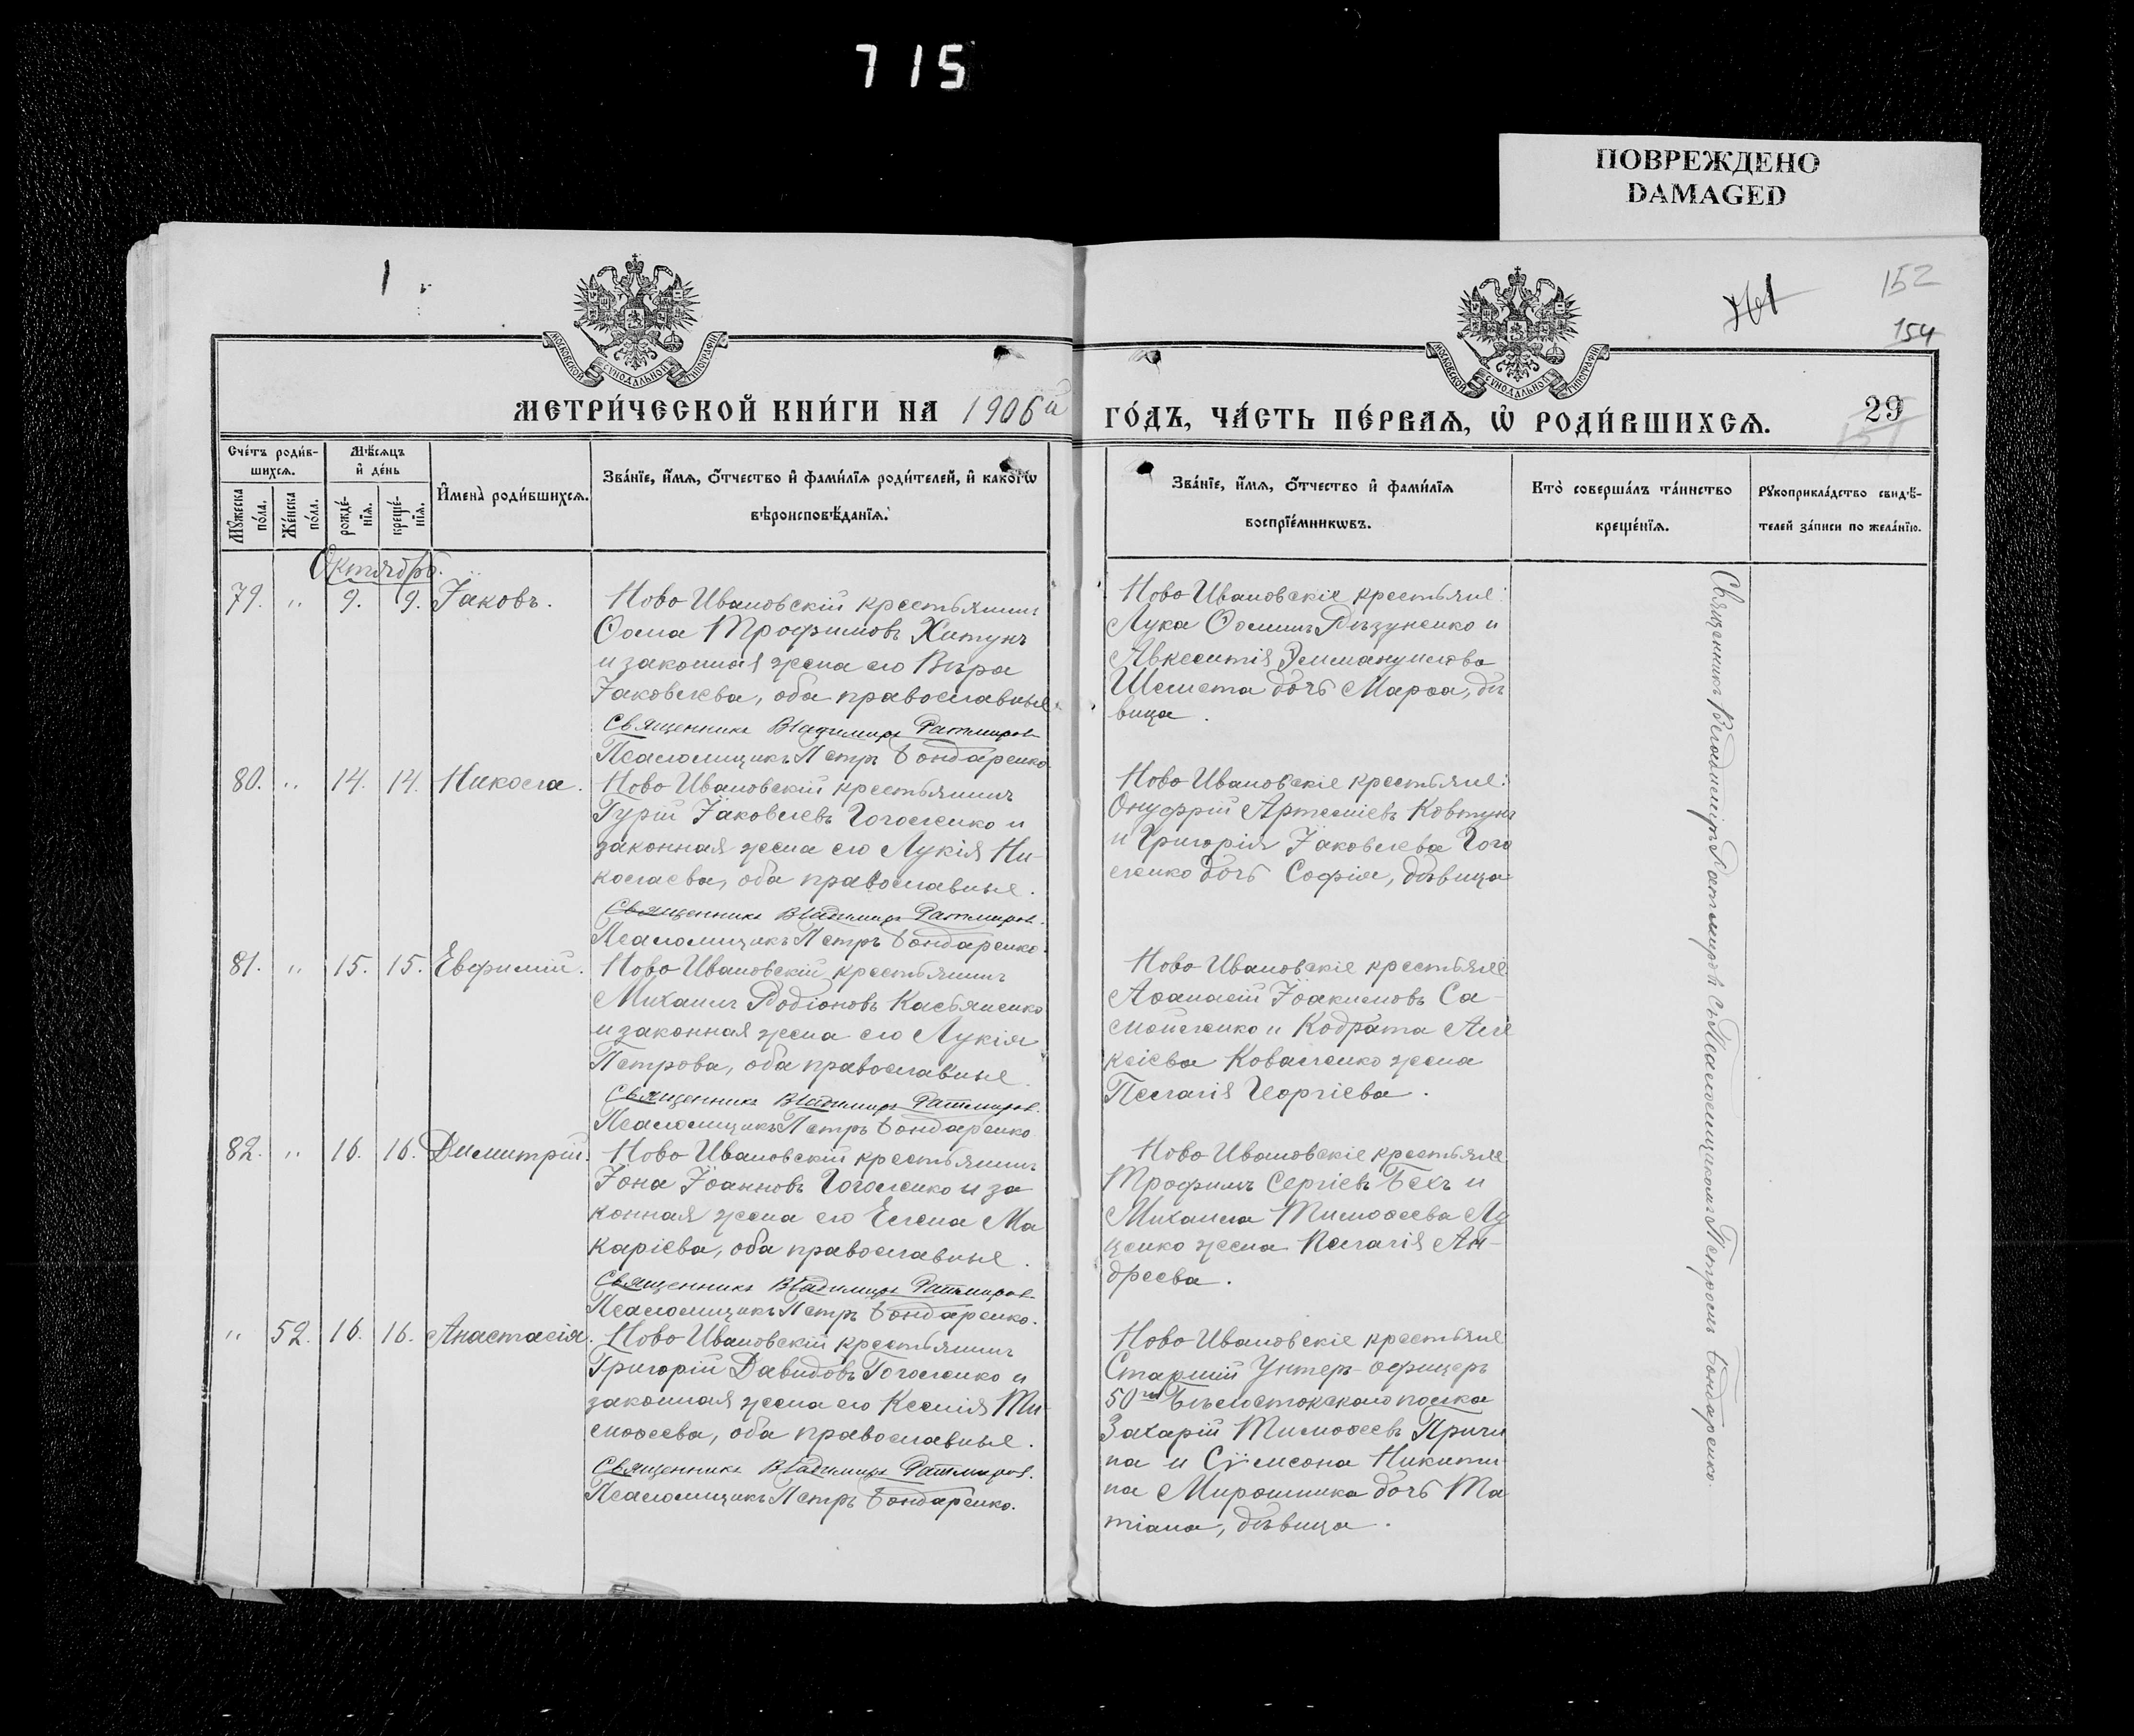 715
ПОВРЕЖДЕНО
DAMAGED
1
152
154
МОСКОВСКОЙ СѴНОДАЛЬНОЙ ТИПОГРАФІИ
МОСКОВСКОЙ СѴНОДАЛЬНОЙ ТИПОГРАФІИ
МЕТРИ́ЧЕСКОЙ КНИ́ГИ НА 1906й
ГО́ДЪ, ЧА́СТЬ ПЕ́РВАѦ, Ѡ҆ РОДИ́ВШИХСѦ.
29
Сче́тъ роди́в-
шихсѧ.
Мѣ́сѧцъ
и҆ де́нь
Мꙋ́жеска по́ла.
Же́нска по́ла.
рожде́-нїѧ.
креще́-нїѧ.
И҆мена̀ роди́вшихсѧ.
Зва́нїе, и҆́мѧ, ѻ҆́тчество и҆ фами́лїѧ роди́телей, и҆ како́гѡ
вѣроисповѣ́данїѧ.
Зва́нїе, и҆́мѧ, ѻ҆́тчество и҆ фами́лїѧ
воспрїе́мникѡвъ.
Кто̀ соверша́лъ та́инство
креще́нїѧ.
Рꙋкоприкла́дство свидѣ́-
телей за́писи по жела́нїю.
Октябрь.
79. " 9. 9. Іаковъ.
Ново Ивановскій крестьянинъ
Ѳома Трофимовъ Хитунъ
и законная жена его Вѣра
Іаковлева, оба православные.
Священникъ Владимиръ Ратмиров
Псаломщикъ Петръ Бондаренко
Ново Ивановскіе крестьяне:
Лука Ѳоминъ Рѣзуненко и
Авксентія Эммануилова
Шемета дочь Марѳа, дѣ
вица.
80. " 14. 14. Никола.
Ново Ивановскій крестьянинъ
Гурій Іаковлевъ Гоголенко и
законная жена его Лукія Ни-
колаева, оба православные.
Священникъ Владимиръ Ратмиров.
Псаломщикъ Петръ Бондаренко.
Ново Ивановскіе крестьяне:
Онуфрій Артеміевъ Ковтунъ
и Григорія Іаковлева Гого
ленко дочь Софія, дѣвица
81. " 15. 15. Евфимій.
Ново Ивановскій крестьянинъ
Михаилъ Родіоновъ Касьяненко
и законная жена его Лукія
Петрова, оба православные.
Священникъ Владимиръ Ратмиров.
Псаломщикъ Петръ Бондаренко
Ново Ивановскіе крестьяне
Аѳанасій Іоакимовъ Са-
мойленко и Кодрата Але
ксіева Коваленко жена
Пелагія Георгіева.
82. " 16. 16. Димитрій.
Ново Ивановскій крестьянинъ
Іона Іоанновъ Гоголенко и за
конная жена его Елена Ма
каріева, оба православные.
Священникъ Владимиръ Ратмиров
Псаломщикъ Петръ Бондаренко.
Ново Ивановскіе крестьяне
Трофимъ Сергіевъ Бехъ и
Михаила Тимоѳеева Лу
ценко жена Пелагія Ан-
дреева.
" 52. 16. 16. Анастасія.
Ново Ивановскій крестьянинъ
Григорій Давидовъ Гоголенко и
законная жена его Ксенія Ти-
моѳеева, оба православные.
Священникъ Владимиръ Ратмиров.
Псаломщикъ Петръ Бондаренко.
Ново Ивановскіе крестьяне
Старшій Унтеръ-офицеръ
50го Бѣлостокскаго полка
Захарій Тимоѳеевъ Причи
на и Сѵмеона Никити
на Мирошника дочь Та
тіана, дѣвица.
Священникъ Владиміръ Ратмировъ съ Псаломщикомъ Петромъ Бондаренко.